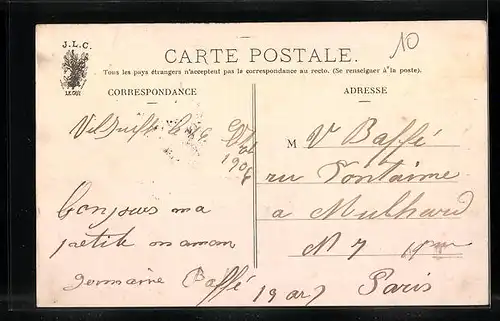 J.L.C.
10
CARTE POSTALE.
Tous les pays étrangers n'acceptent pas la correspondance au recto. (Se renseigner à la poste).
CORRESPONDANCE
ADRESSE
Viljuif le 6
190
Bonjour ma
petite maman
Germaine Baffé
M V Baffé
ru Fontaine
a Mulhard
N 7
19 ar
Paris